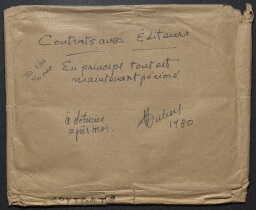 Contrats avec Editeurs
En principe tout est
maintenant périmé
à détruire
après moi.
1980